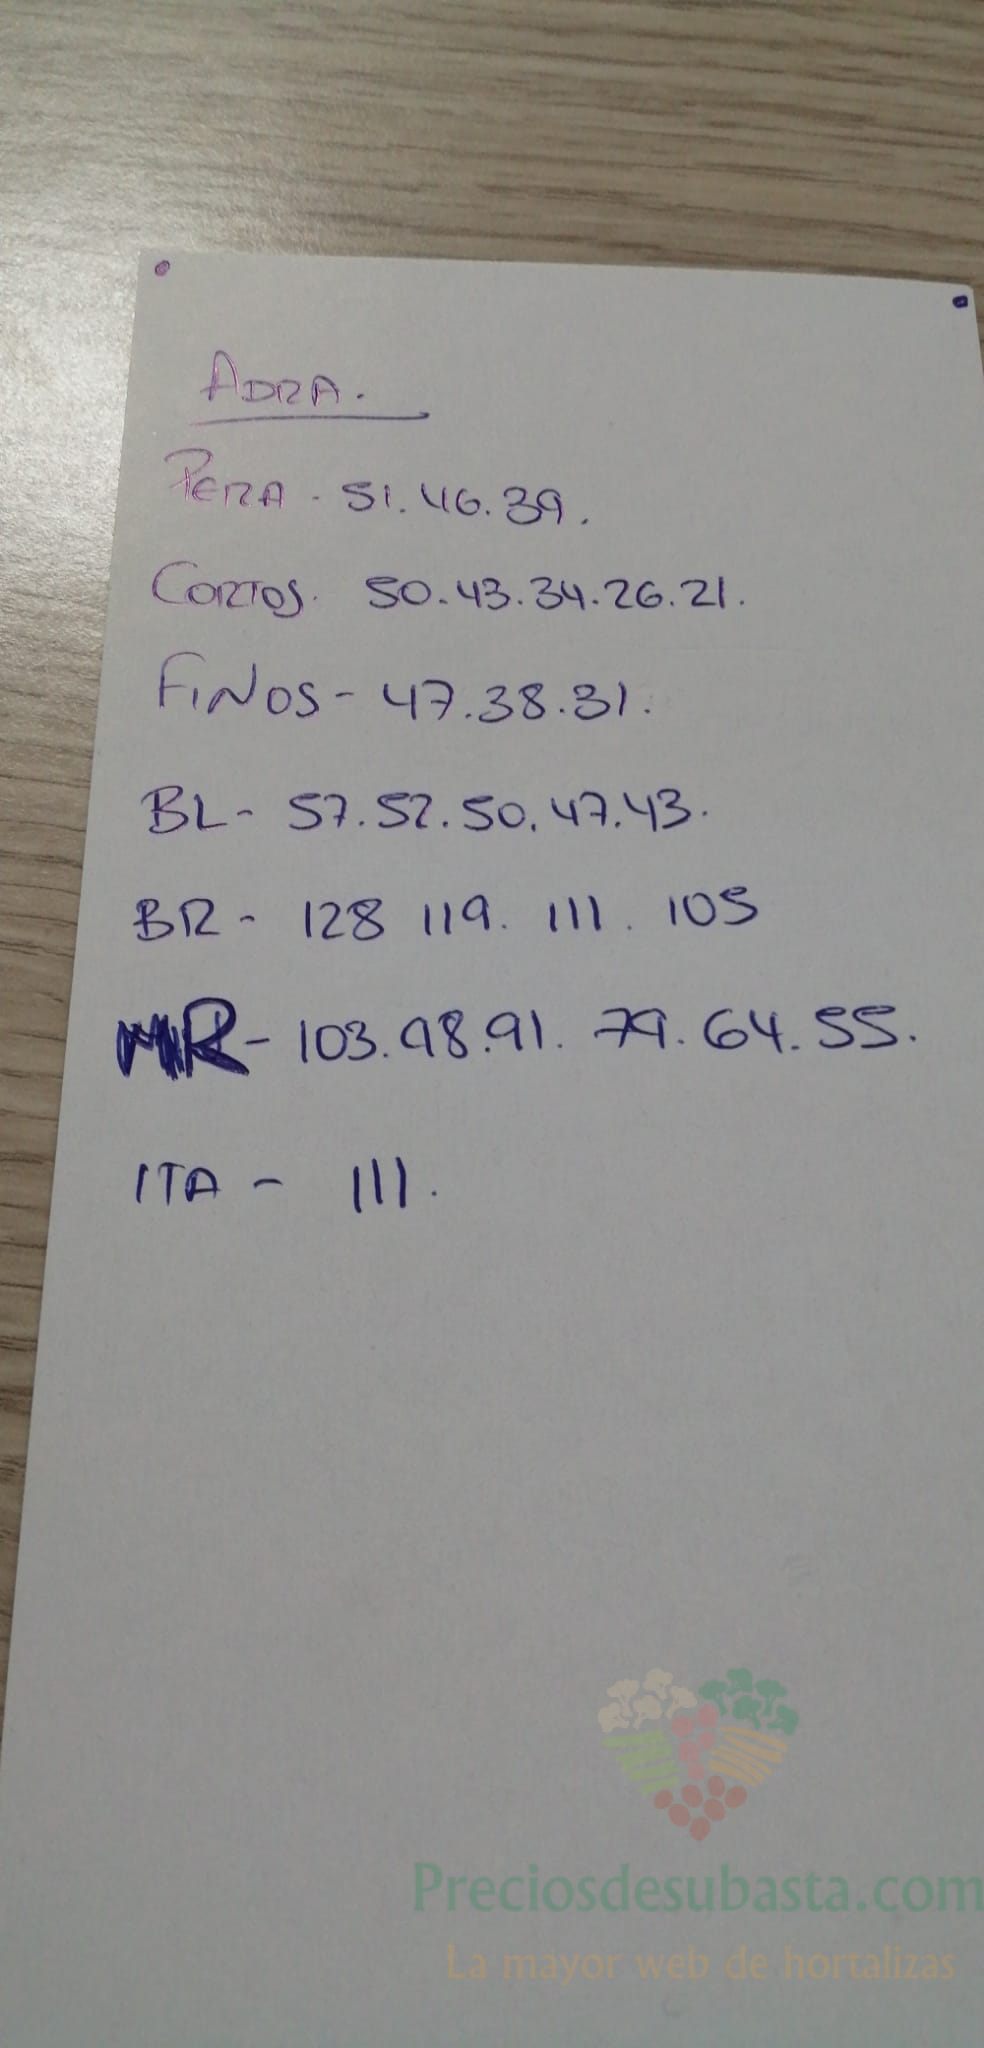 ADRA.
PERA - 51.46.39.
CORTOS. 50.43.34.26.21.
FINOS - 47.38.31.
BL - 57.52.50.47.43.
BR - 128 119. 111. 105
MR - 103.98.91.79.64.55.
ITA - 111.
Preciosdesubasta.com
La mayor web de hortalizas